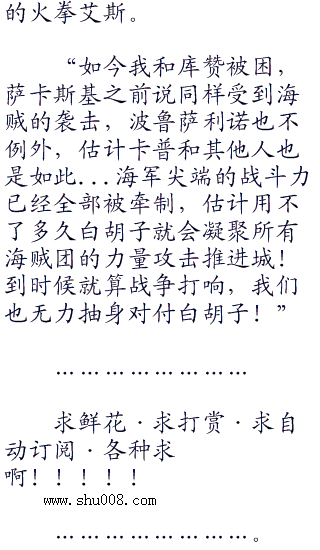 的火拳艾斯。
“如今我和库赞被困，
萨卡斯基之前说同样受到海
贼的袭击，波鲁萨利诺也不
例外，估计卡普和其他人也
是如此...海军尖端的战斗力
已经全部被牵制，估计用不
了多久白胡子就会凝聚所有
海贼团的力量攻击推进城！
到时候就算战争打响，我们
也无力抽身对付白胡子！”
……………………
求鲜花·求打赏·求自
动订阅·各种求
啊！！！！！
www.shu008.com
……………………。